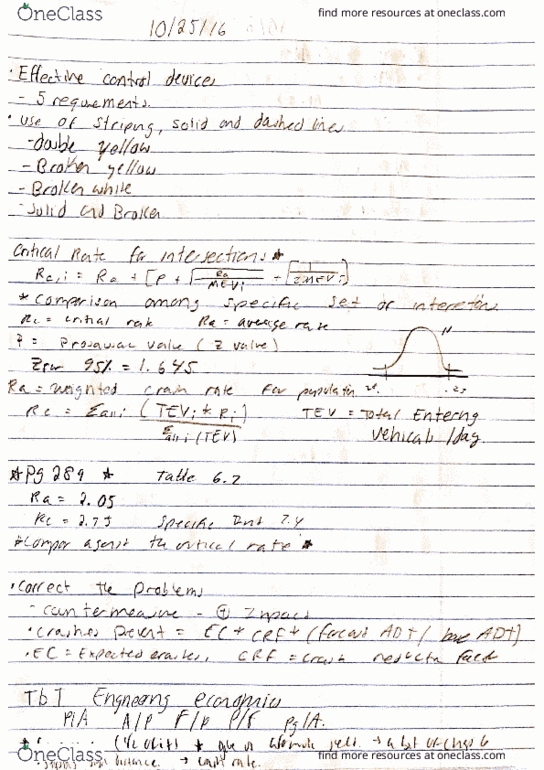 OneClass
find more resources at oneclass.com
10/25/16
• Effective control devices
- 5 requirements
• use of striping, solid and dashed lines
- double yellow
- Broken yellow
- Broken white
- Solid and Broken
Critical Rate for intersections ★
Rc,i = Ra + [P * √Ra/MEVi] + [1/2MEVi]
* Comparison among specific set of
Rc = critial rate Ra = average rate
P = value (Z value)
Zfor 95% = 1.645
Ra = weighted crash rate for populatin
Rc = Σall i (TEVi * Ri) TEV = Total Entering
Σall i (TEV) vehicals /day
★ Pg 289 ★ Table 6.2
Ra = 2.05
Rc = 2.75 specific Int 7.4
*Compar against the critical rate ★
• Correct the problems
- countermeasure - ⊕ Impact
• crashes prevent = EC * CRF * (forcast ADT / base ADT)
• EC = Expected crashes, CRF = Crash
Engineering economics
P/A A/P F/P P/F
rate.
OneClass
find more resources at oneclass.com